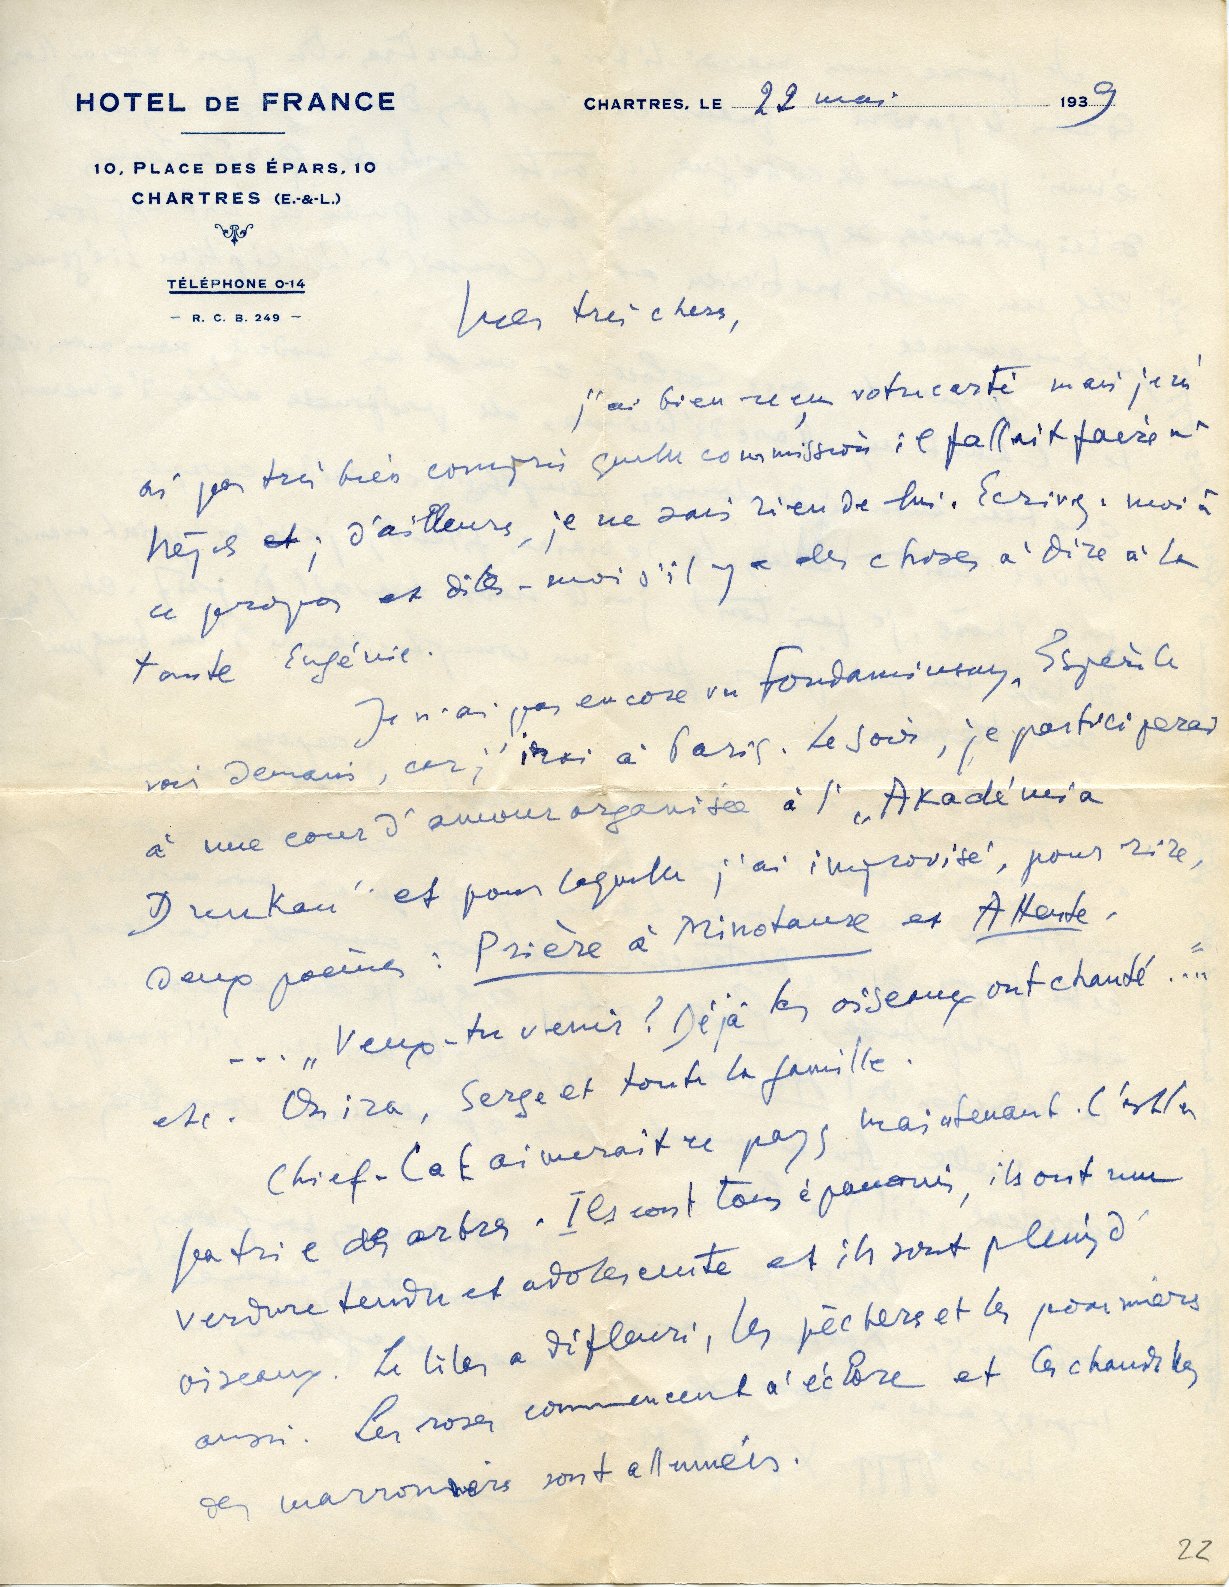 HOTEL DE FRANCE
10, PLACE DES ÉPARS, 10
CHARTRES (E.-&-L.)
TÉLÉPHONE 0-14
— R. C. B. 249 —
CHARTRES, LE 22 mai 1939
Mes très chers,
j'ai bien reçu votre carte mais je n'
ai pas très bien compris quelle commission il fallait faire à
et; d'ailleurs, je ne sais rien de lui. Ecrivez-moi à
ce propos et dites-moi s'il y a des choses à dire à la
tante Eugénie.
Je n'ai pas encore vu Fondaminsky, J'espère le
voir demain, car j'irai à Paris. Le soir, je participerai
à une cour d'amour organisée à l'„Akadémia
Dunkan" et pour laquelle j'ai improvisé, pour rire,
deux poèmes : Prière à Minotaure et Attente.
... „Veux-tu venir ? Déjà les oiseaux ont chanté..."
etc. Serge et toute la famille.
Chief-Cat aimerait ce pays maintenant. C'est la
patrie des arbres. Ils sont tous épanouis, ils ont une
verdure tendre et adolescente et ils sont pleins d'
oiseaux. Le lilas a défleuri, les pêchers et les pommiers
aussi. Les roses commencent à éclore et les chandelles
des marronniers sont allumées.
22